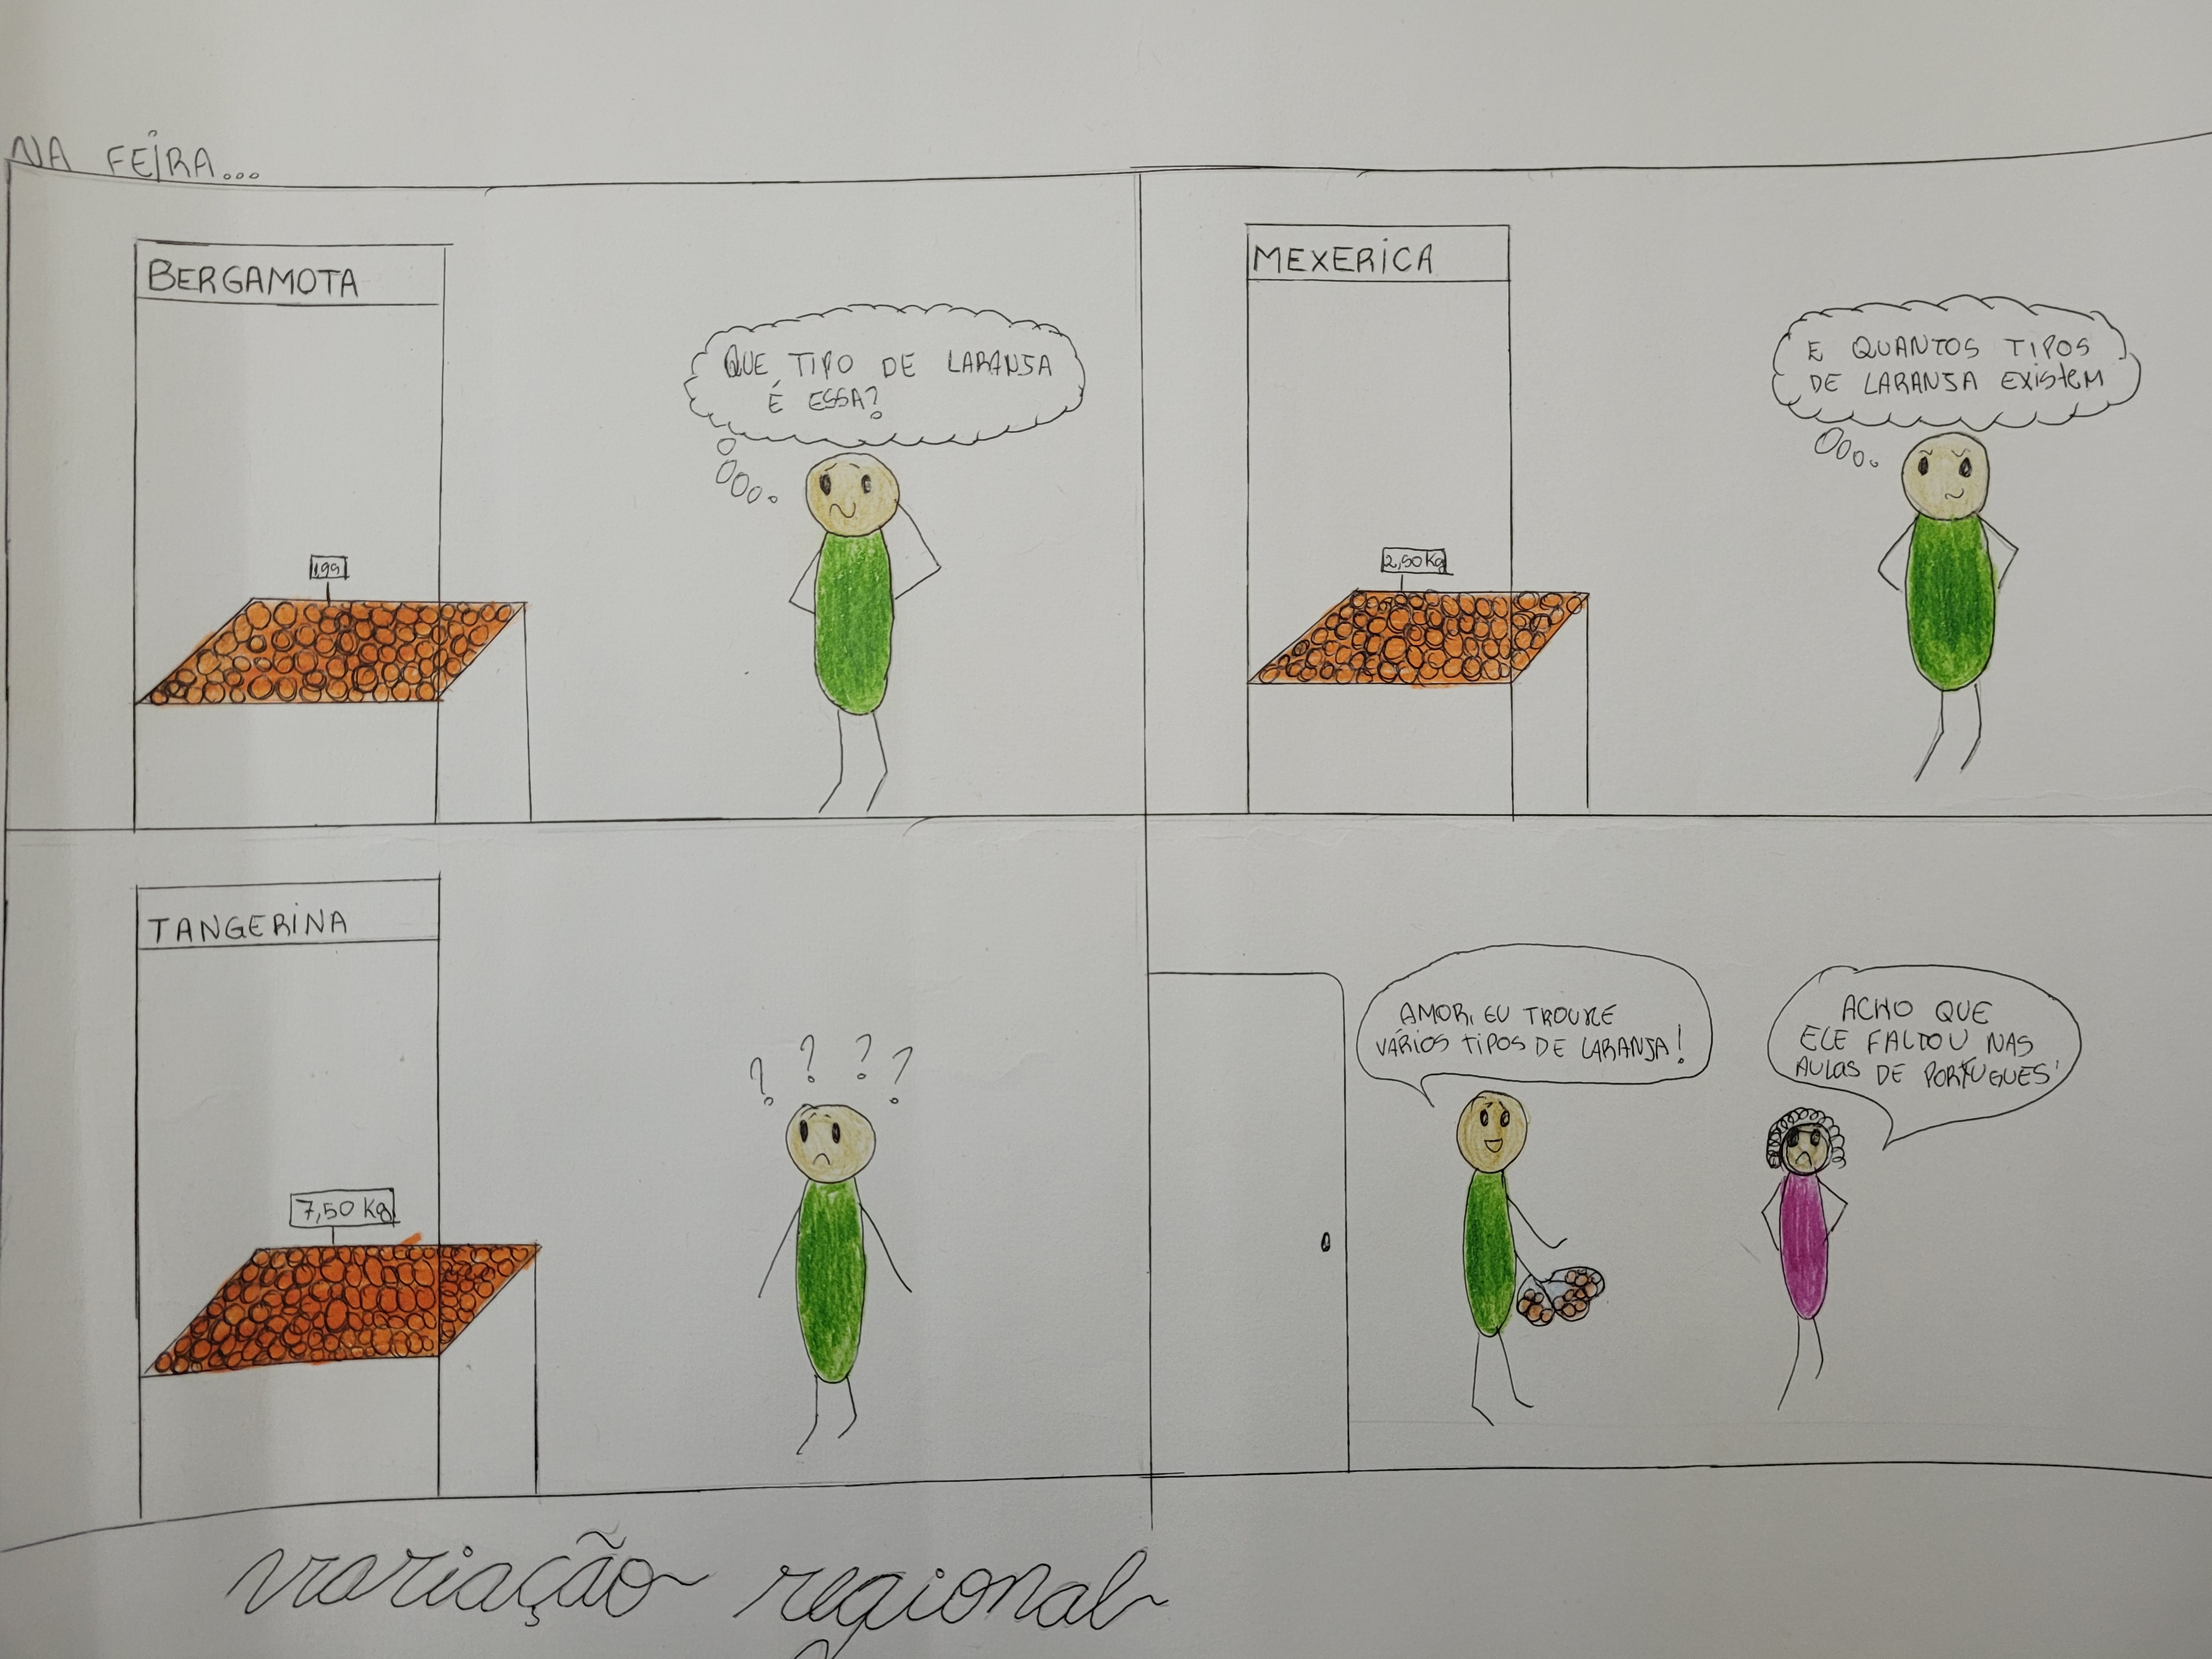 NA FEIRA...
BERGAMOTA
QUE TIPO DE LARANJA
É ESSA?
1,99
MEXERICA
E QUANTOS TIPOS
DE LARANJA EXISTEM
2,50 Kg
TANGERINA
? ? ? ?
7,50 Kg
AMOR, EU TROUXE
VÁRIOS TIPOS DE LARANJA!
ACHO QUE
ELE FALTOU NAS
AULAS DE PORTUGUES
variação regional